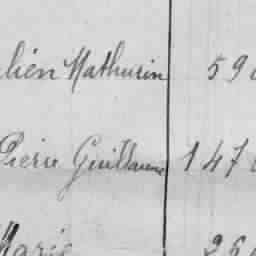 lien Mathurin 590
Pierre Guillaume 147
Marie 26